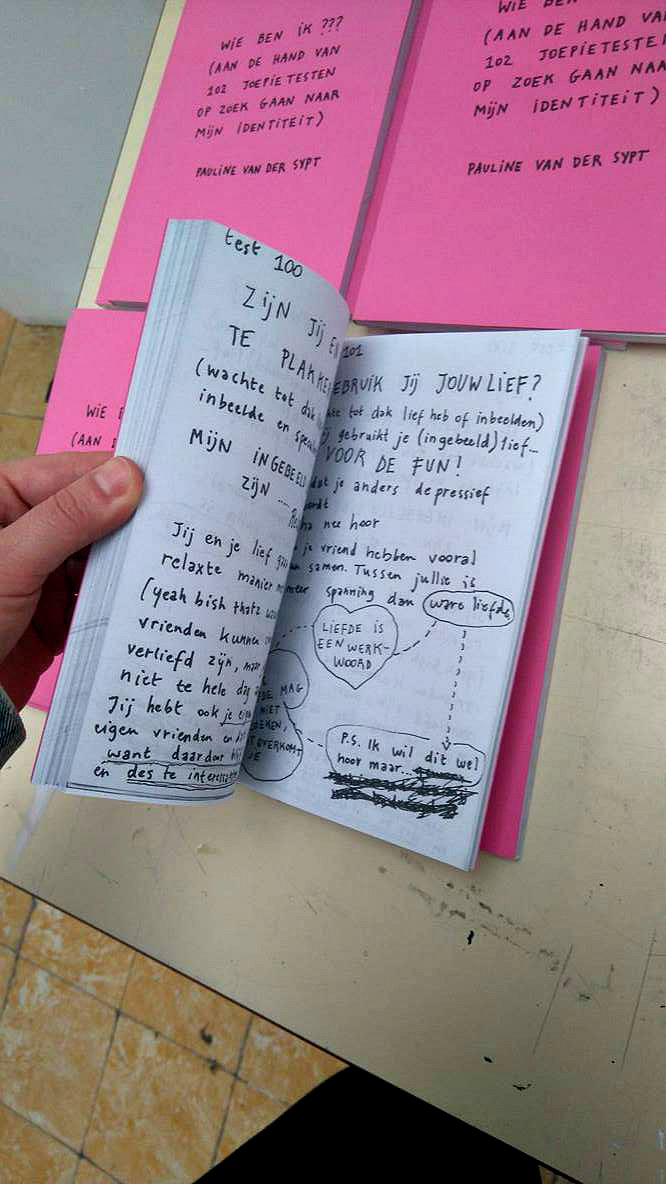 WIE BEN IK ???
(AAN DE HAND VAN
102 JOEPIETESTEN
OP ZOEK GAAN NAAR
MIJN IDENTITEIT)
PAULINE VAN DER SYPT
WIE BEN
(AAN DE HAND VA
102 JOEPIETESTE
OP ZOEK GAAN NAA
MIJN IDENTITEIT)
PAULINE VAN DER SYPT
WIE
(AAN
test 100
ZIJN JIJ E
TE PLAKKE
(wachte tot dak
inbeelde en
MIJN INGEBEEL
ZIJN ....
Jij en je lief
relaxte manier
(yeah bish thatz
vrienden kunnen
verliefd zijn, maar
niet te hele dag
Jij hebt ook je
eigen vrienden en
want daardoor
en des te interessa
101
EBRUIK JIJ JOUW LIEF?
tot dak lief heb of inbeelden)
gebruikt je (ingebeeld) lief...
VOOR DE FUN!
dat je anders depressief
ordt
ha nee hoor
je vriend hebben vooral
samen. Tussen jullie is
meer spanning dan ware liefde
LIEFDE IS
EEN WERK-
WOORD
DE MAG
NIET
OEKEN,
T OVERKOMT
JE
P.S. Ik wil dit wel
hoor maar...